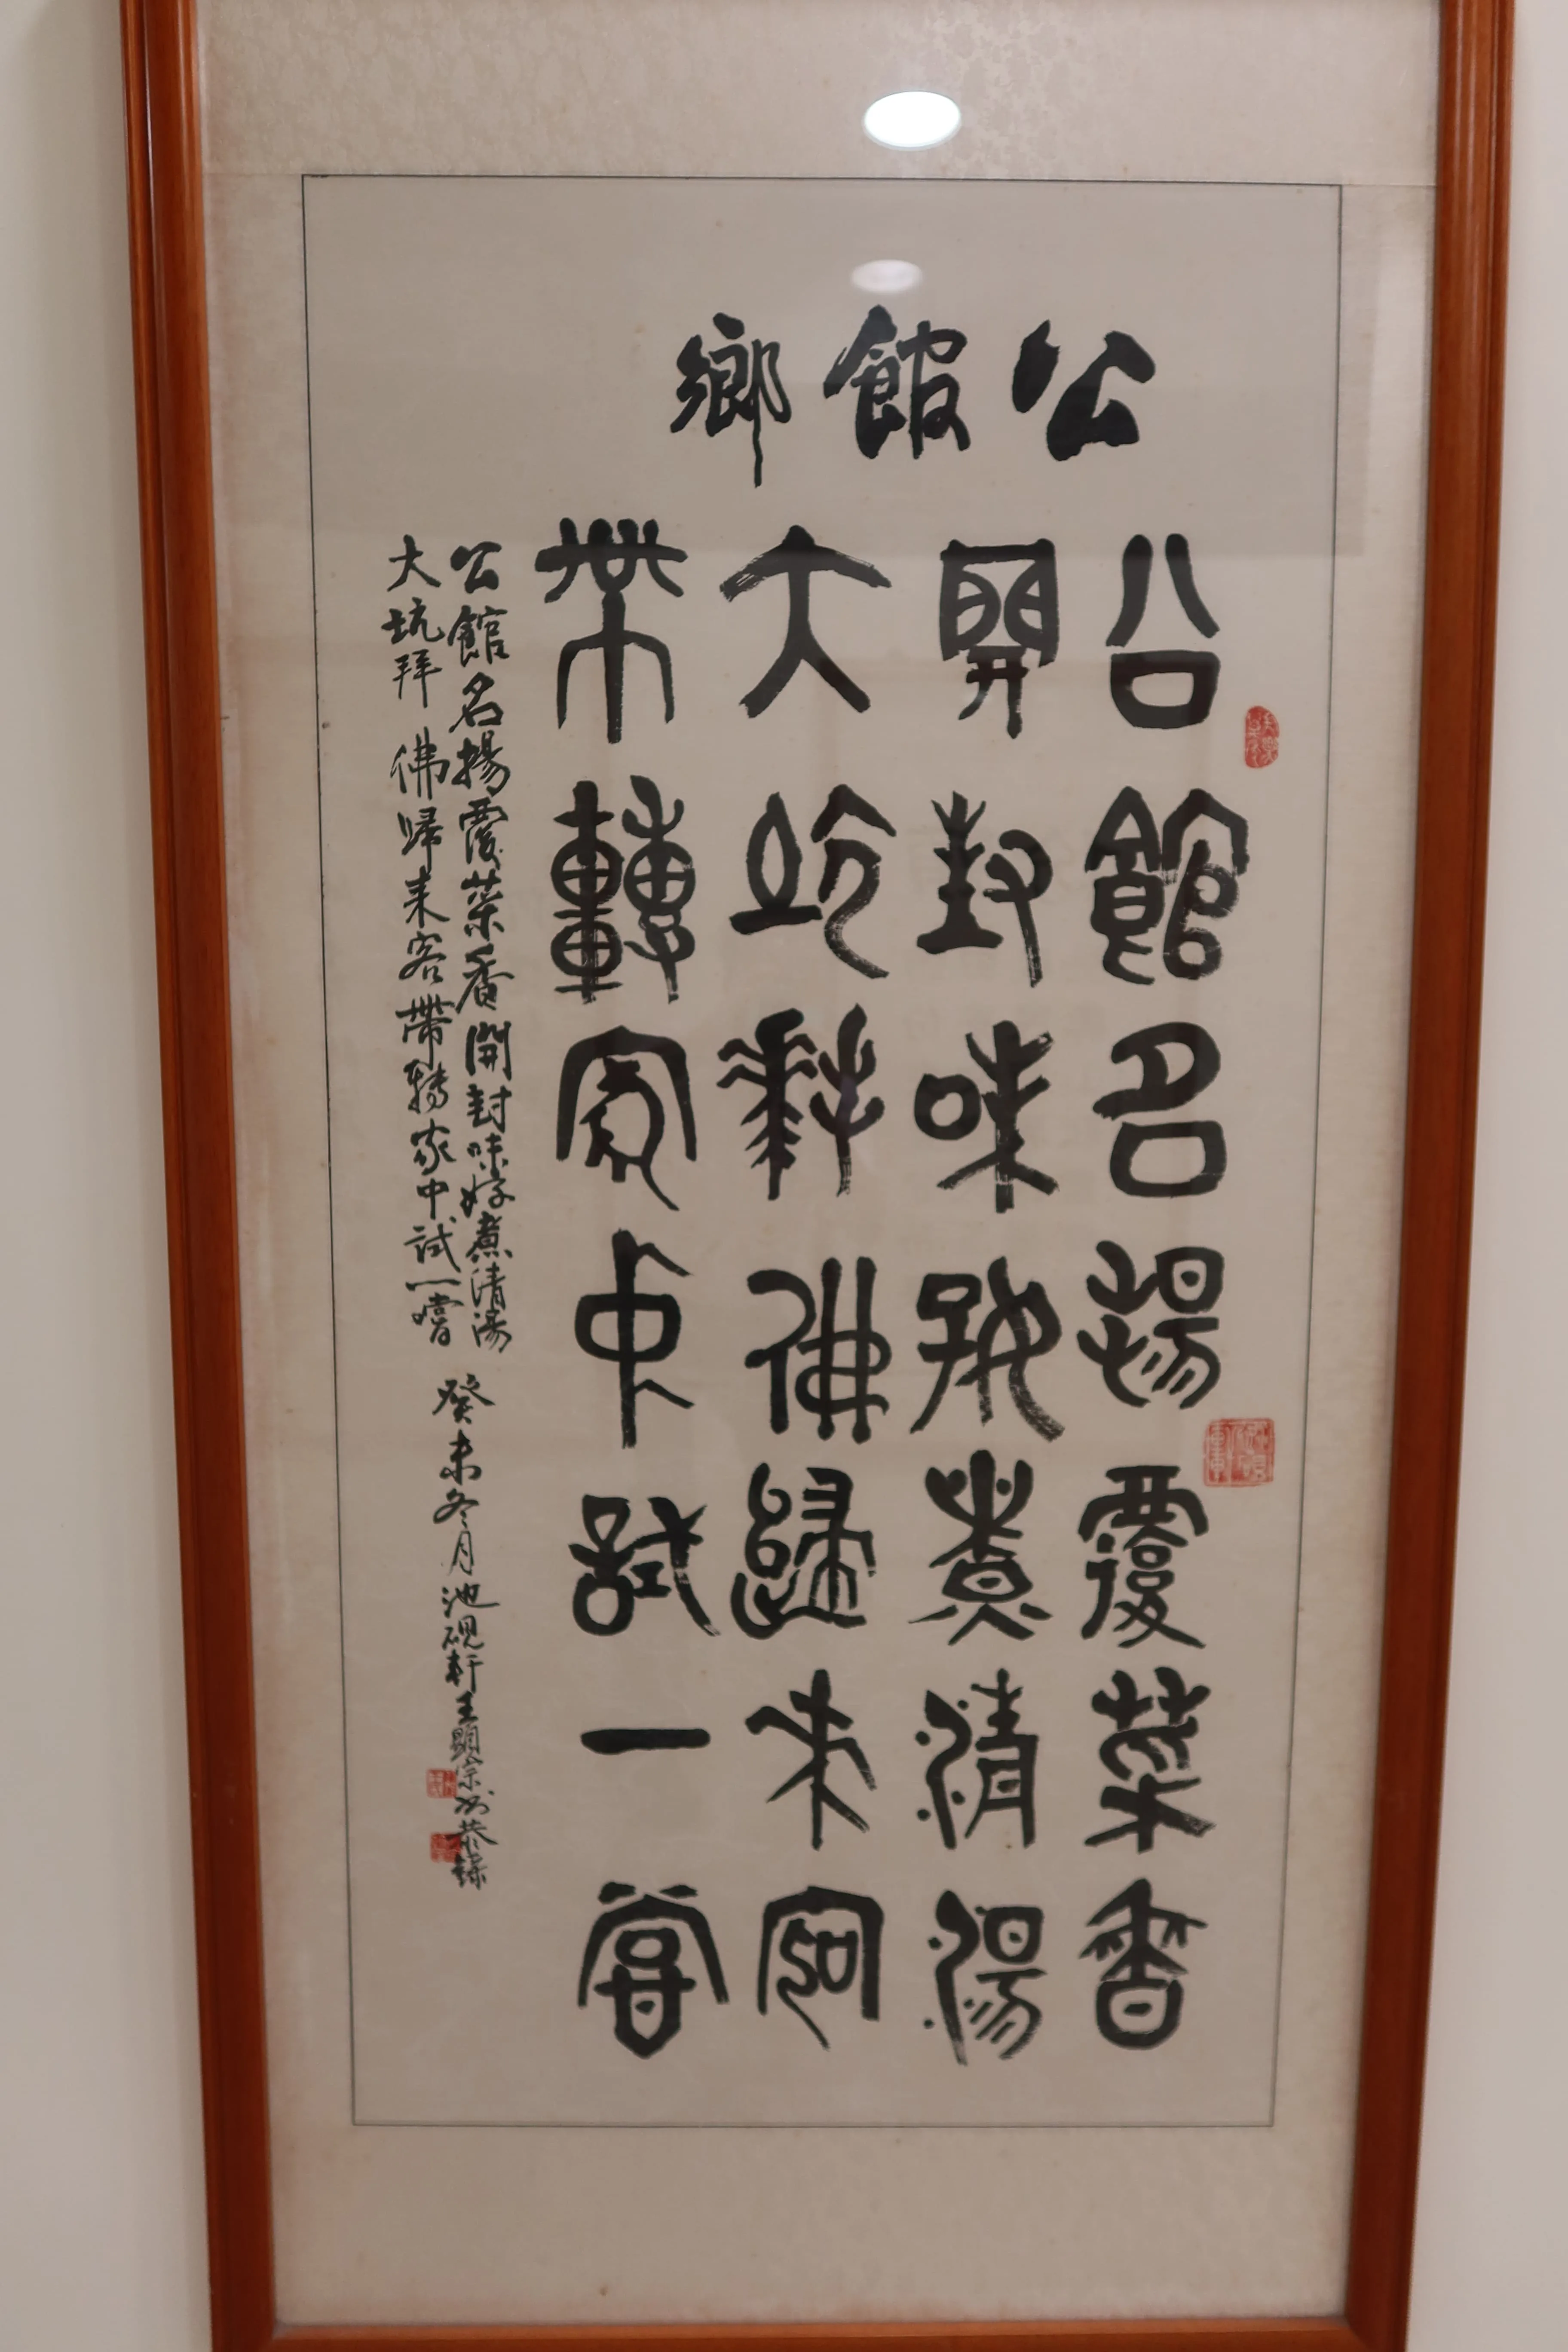 公館鄉
公館名揚覆菜香
開封味好煮清湯
大坑拜佛歸來客
帶轉家中試一嘗
公館名揚覆菜香開封味好煮清湯
大坑拜佛歸來客帶轉家中試一嚐
癸未冬月池硯軒王顯宗恭錄